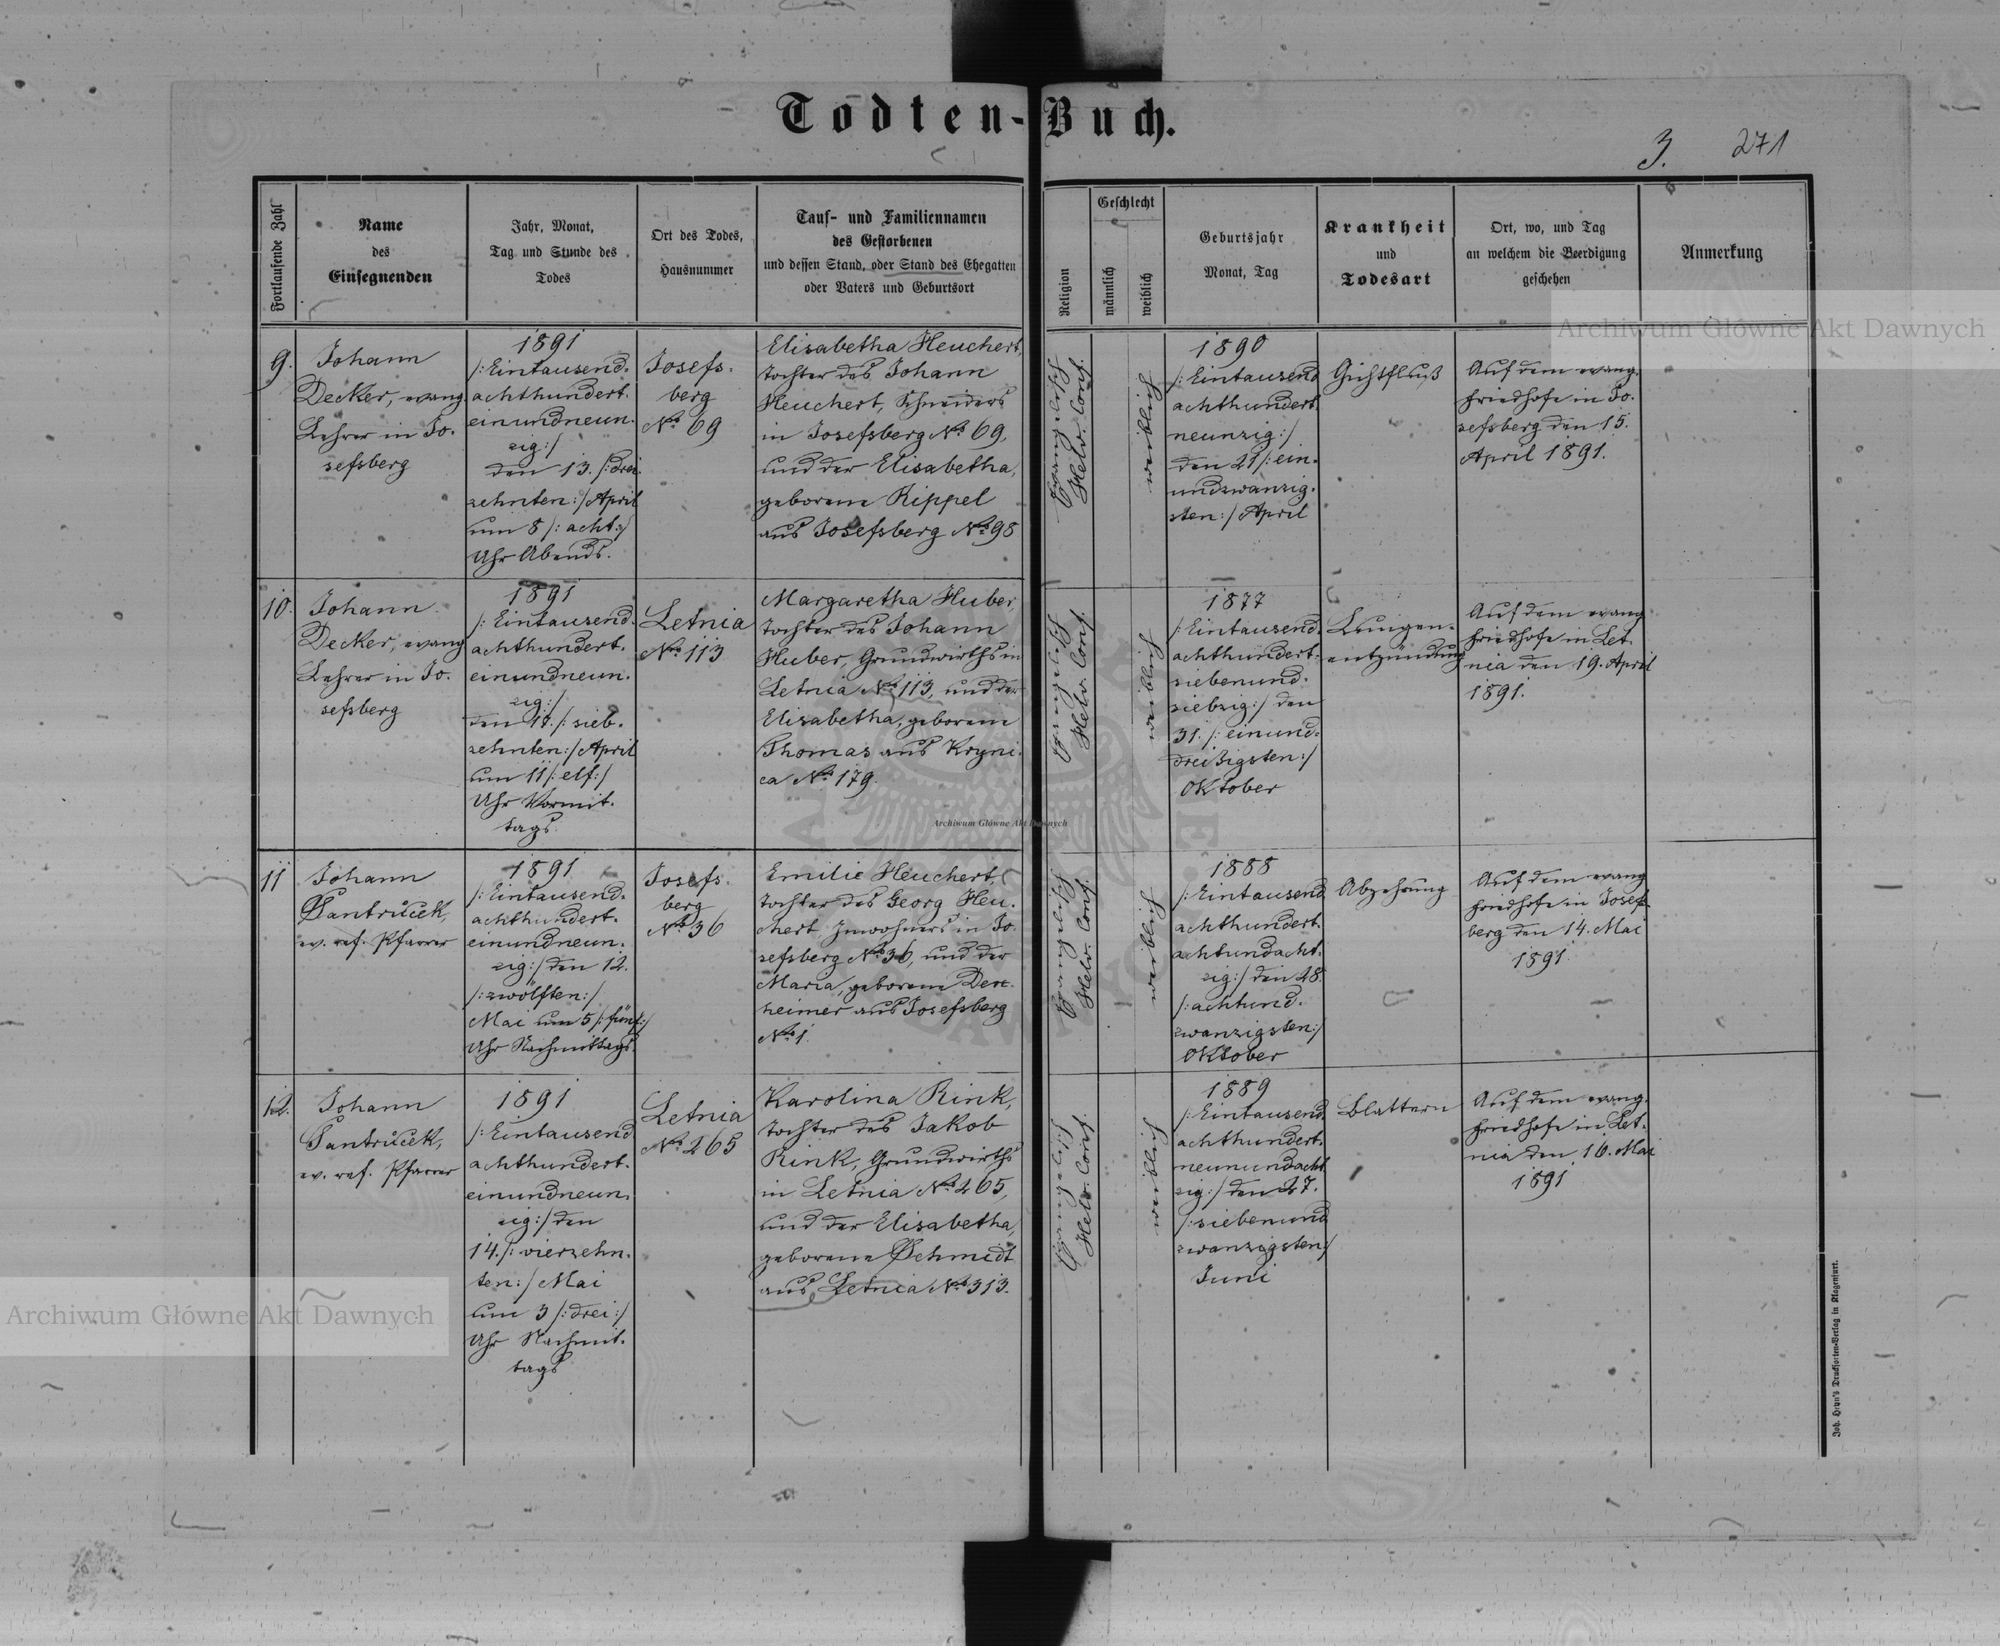 Todten-Buch.
3. 271
Fortlaufende Zahl
Name
des
Einsegnenden
Jahr, Monat,
Tag und Stunde des
Todes
Ort des Todes,
Hausnummer
Tauf- und Familiennamen
des Gestorbenen
und dessen Stand, oder Stand des Ehegatten
oder Vaters und Geburtsort
Religion
Geschlecht
männlich
weiblich
Geburtsjahr
Monat, Tag
Krankheit
und
Todesart
Ort, wo, und Tag
an welchem die Beerdigung
geschehen
Anmerkung
9.
Johann
Decker, evang.
Lehrer in Jo-
sefsberg
1891
/:Eintausend-
achthundert-
einundneun-
zig:/
den 13. /:drei-
zehnten:/ April
um 8 /:acht:/
Uhr Abends.
Josefs-
berg
No 69
Elisabetha Heuchert,
Tochter des Johann
Heuchert, Schneiders
in Josefsberg No 69,
und der Elisabetha,
geborene Rippel
aus Josefsberg No 98
Evangelisch
Helv. Conf.
weiblich
1890
/:Eintausend
achthundert
neunzig:/
den 21 /:ein-
undzwanzig-
sten:/ April
Gichtfluß
Auf dem evang.
Friedhofe in Jo-
sefsberg den 15.
April 1891.
10.
Johann
Decker, evang
Lehrer in Jo-
sefsberg
1891
/:Eintausend-
achthundert-
einundneun-
zig:/
den 17. /:sieb-
zehnten:/ April
um 11 /:elf:/
Uhr Vormit-
tags
Letnia
No 113
Margaretha Huber,
Tochter des Johann
Huber, Grundwirths in
Letnia No 113, und der
Elisabetha, geborene
Thomas aus Kryni-
ca No 179.
Evangelisch
Helv. Conf.
weiblich
1877
/:Eintausend-
achthundert-
siebenund-
siebzig:/ den
31. /:einund-
dreißigsten:/
Oktober
Lungen-
entzündung
Auf dem evang
Friedhofe in Let-
nia den 19. April
1891.
11
Johann
Pantrucek,
ev. ref. Pfarrer
1891
/:Eintausend-
achthundert-
einundneun-
zig:/ den 12.
/:zwölften:/
Mai um 5 /:fünf:/
Uhr Nachmittags.
Josefs-
berg
No 36
Emilie Heuchert,
Tochter des Georg Heu-
chert, Inwohners in Jo-
sefsberg No 36, und der
Maria, geborene
heimer aus Josefsberg
No 1.
Evangelisch
Helv. Conf.
weiblich
1888
/:Eintausend
achthundert-
achtundacht-
zig:/ den 28.
/:achtund-
zwanzigsten:/
Oktober
Abzehrung
Auf dem evang
Friedhofe in Josefs-
berg den 14. Mai
1891.
12.
Johann
Pantrucek,
ev. ref. Pfarrer
1891
/:Eintausend
achthundert-
einundneun-
zig:/ den
14. /:vierzehn-
ten:/ Mai
um 3 /:drei:/
Uhr Nachmit-
tags
Letnia
No 265
Karolina Rink,
Tochter des Jakob
Rink, Grundwirths
in Letnia No 265,
und der Elisabetha,
geborene Schmidt
aus Letnia No 313.
Evangelisch
Helv. Conf.
weiblich
1889
/:Eintausend
achthundert-
neunundacht
zig:/ den 27.
/:siebenund
zwanzigsten:/
Juni
Blattern
Auf dem evang.
Friedhofe in Let-
nia den 16. Mai
1891
Joh. Heyn's Drucksorten-Verlag in Klagenfurt.
Archiwum Główne Akt Dawnych
Archiwum Główne Akt Dawnych
Archiwum Główne Akt Dawnych